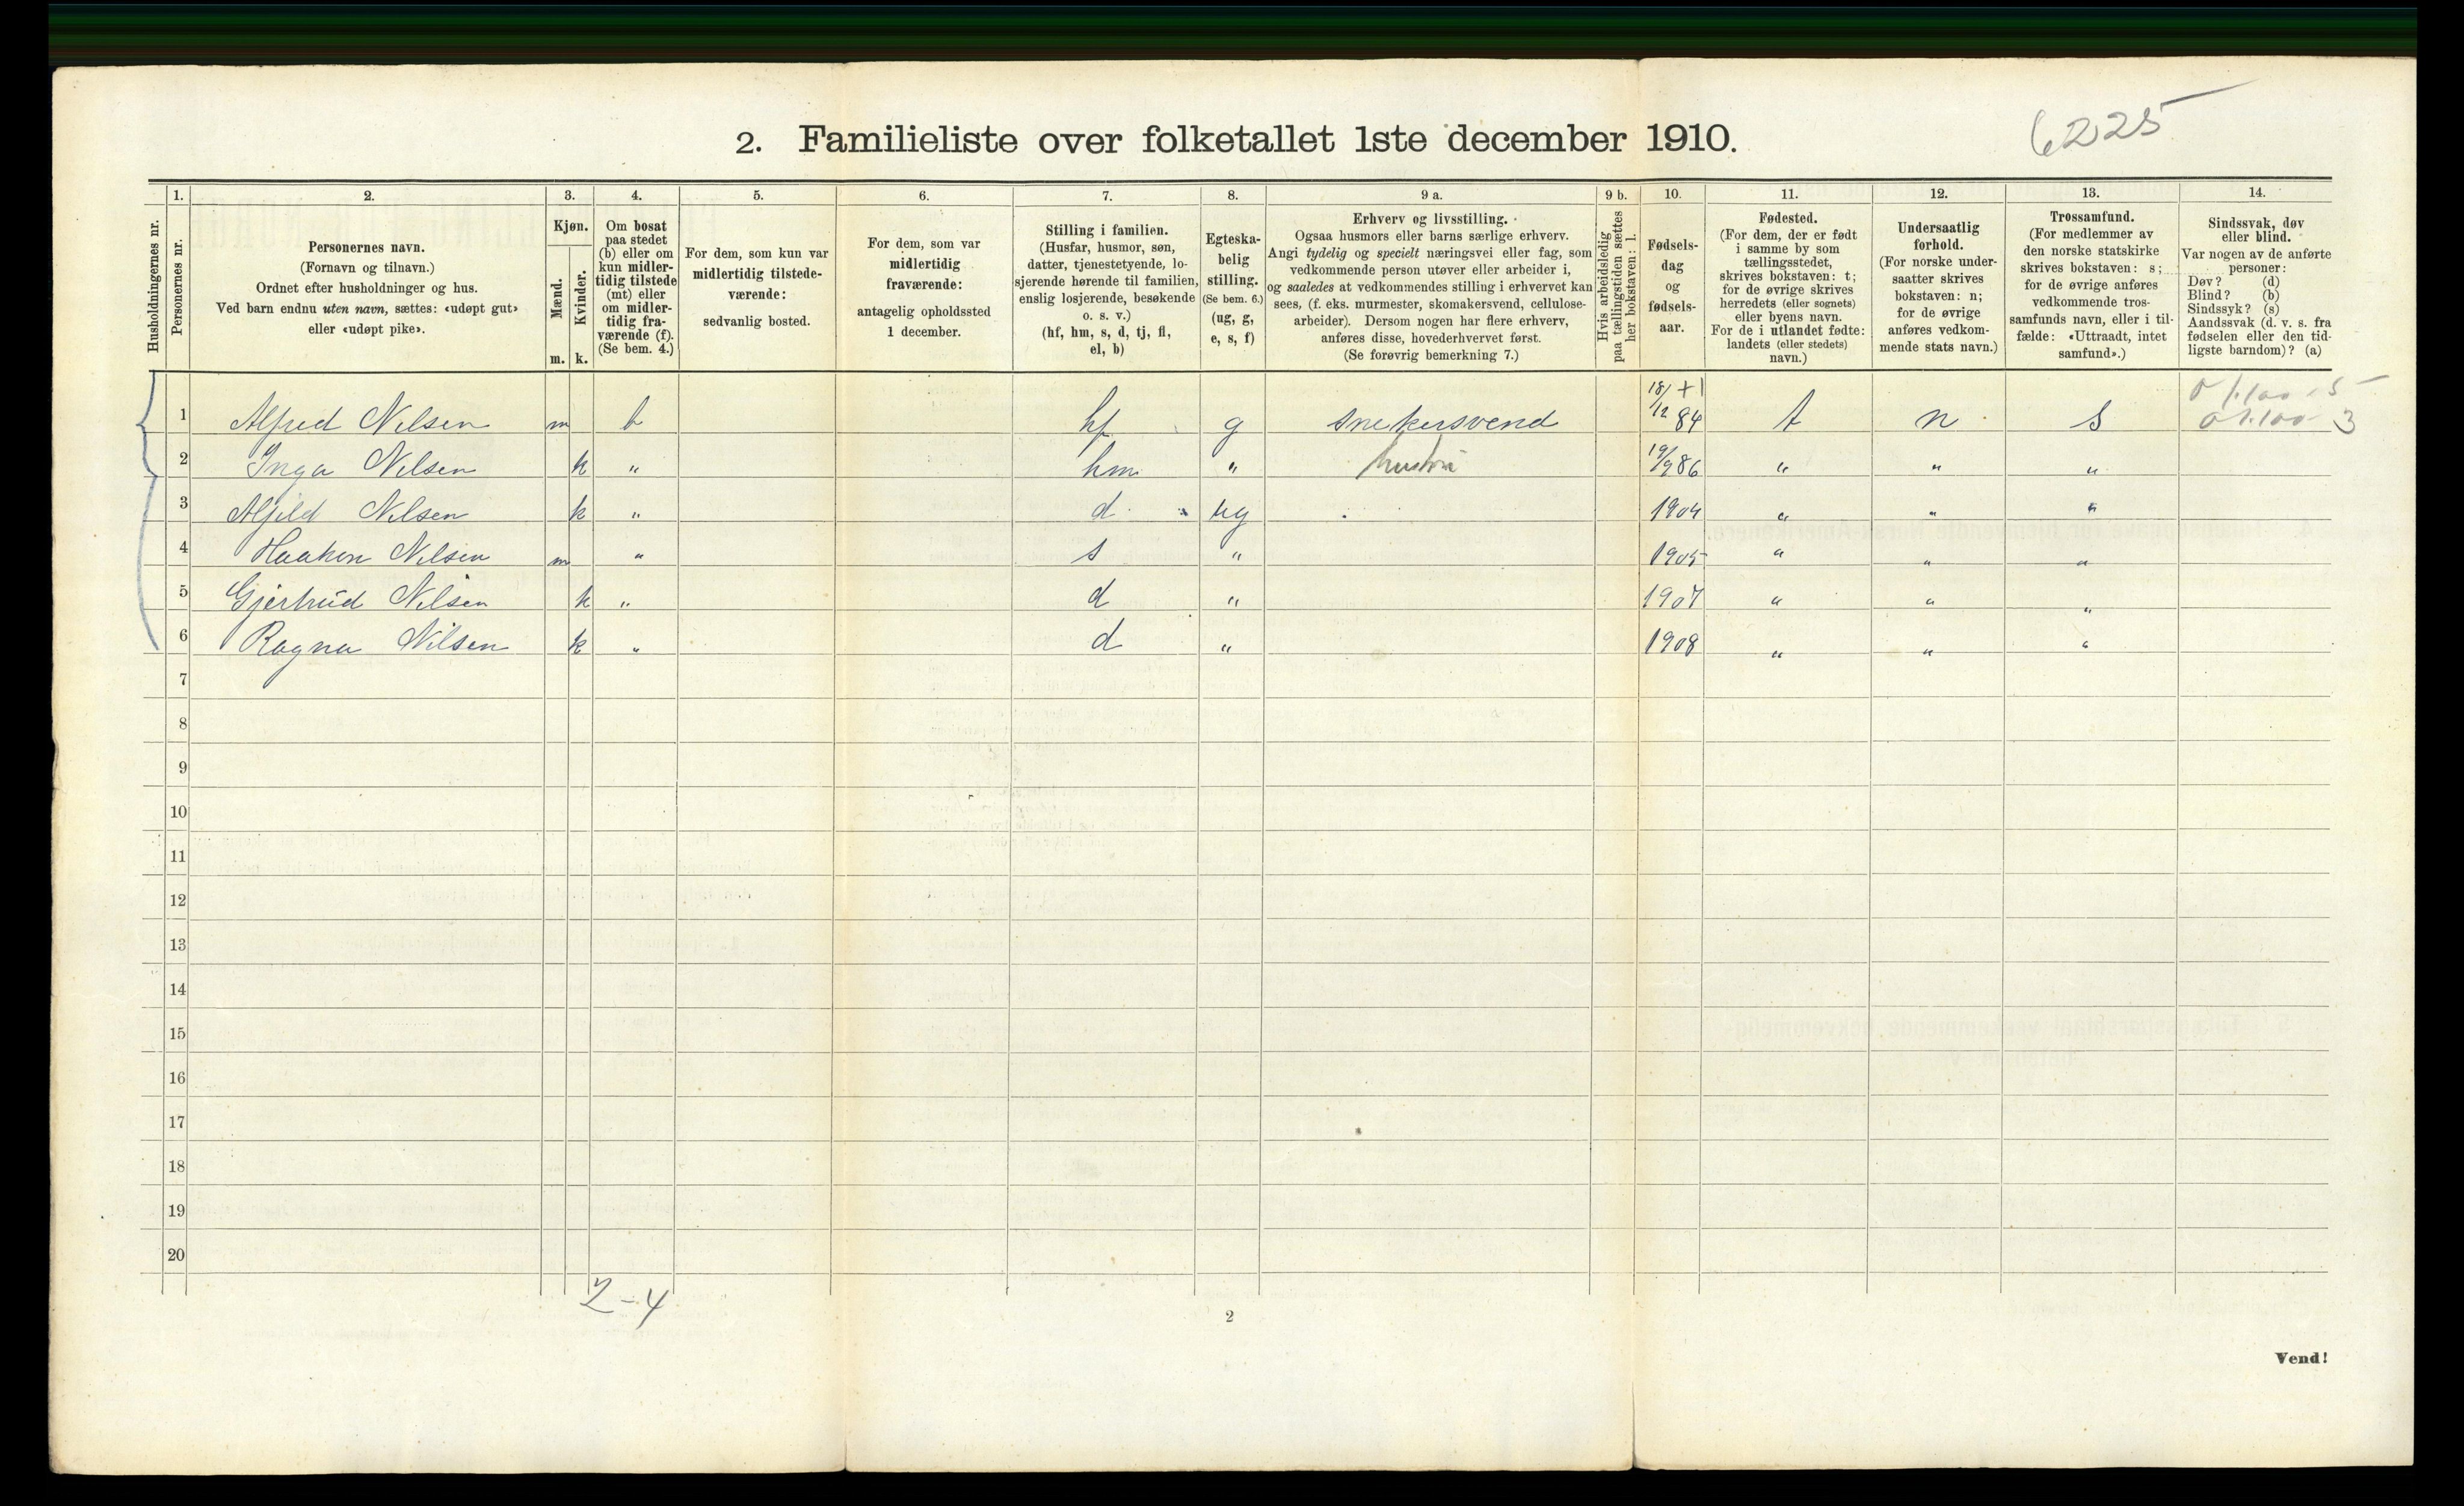 6225
2. Familieliste over folketallet 1ste december 1910.
Husholdningernes nr.
1. Personernes nr.
2. Personernes navn.
(Fornavn og tilnavn.)
Ordnet efter husholdninger og hus.
Ved barn endnu uten navn, sættes: «udøpt gut»
eller «udøpt pike».
3. Kjøn.
Mænd. m.
Kvinder. k.
4. Om bosat
paa stedet
(b) eller om
kun midler-
tidig tilstede
(mt) eller
om midler-
tidig fra-
værende (f).
(Se bem. 4.)
5. For dem, som kun var
midlertidig tilstede-
værende:
sedvanlig bosted.
6. For dem, som var
midlertidig
fraværende:
antagelig opholdssted
1 december.
7. Stilling i familien.
(Husfar, husmor, søn,
datter, tjenestetyende, lo-
sjerende hørende til familien,
enslig losjerende, besøkende
o. s. v.)
(hf, hm, s, d, tj, fl,
el, b)
8. Egteska-
belig
stilling.
(Se bem. 6.)
(ug, g,
e, s, f)
9 a. Erhverv og livsstilling.
Ogsaa husmors eller barns særlige erhverv.
Angi tydelig og specielt næringsvei eller fag, som
vedkommende person utøver eller arbeider i,
og saaledes at vedkommendes stilling i erhvervet kan
sees, (f. eks. murmester, skomakersvend, cellulose-
arbeider). Dersom nogen har flere erhverv,
anføres disse, hovederhvervet først.
(Se forøvrig bemerkning 7.)
9 b. Hvis arbeidsledig
paa tællingstiden sættes
her bokstaven: l.
10. Fødsels-
dag
og
fødsels-
aar.
11. Fødested.
(For dem, der er født
i samme by som
tællingsstedet,
skrives bokstaven: t;
for de øvrige skrives
herredets (eller sognets)
eller byens navn.
For de i utlandet fødte:
landets (eller stedets)
navn.)
12. Undersaatlig
forhold.
(For norske under-
saatter skrives
bokstaven: n;
for de øvrige
anføres vedkom-
mende stats navn.)
13. Trossamfund.
(For medlemmer av
den norske statskirke
skrives bokstaven: s;
for de øvrige anføres
vedkommende tros-
samfunds navn, eller i til-
fælde: «Uttraadt, intet
samfund».)
14. Sindssvak, døv
eller blind.
Var nogen av de anførte
personer:
Døv? (d)
Blind? (b)
Sindssyk? (s)
Aandssvak (d. v. s. fra
fødselen eller den tid-
ligste barndom)? (a)
1 Alfred Nilsen m b hf g snekersvend 18/12 84 t n s
2 Inga Nilsen k " hm " hustru 19/9 86 " " "
3 Alfild Nilsen k " d ug 1904 " " "
4 Haakon Nilsen m " s " 1905 " " "
5 Gjertrud Nilsen k " d " 1907 " " "
6 Ragna Nilsen k " d " 1908 " " "
7
8
9
10
11
12
13
14
15
16
17
18
19
20
2-4
2
Vend!